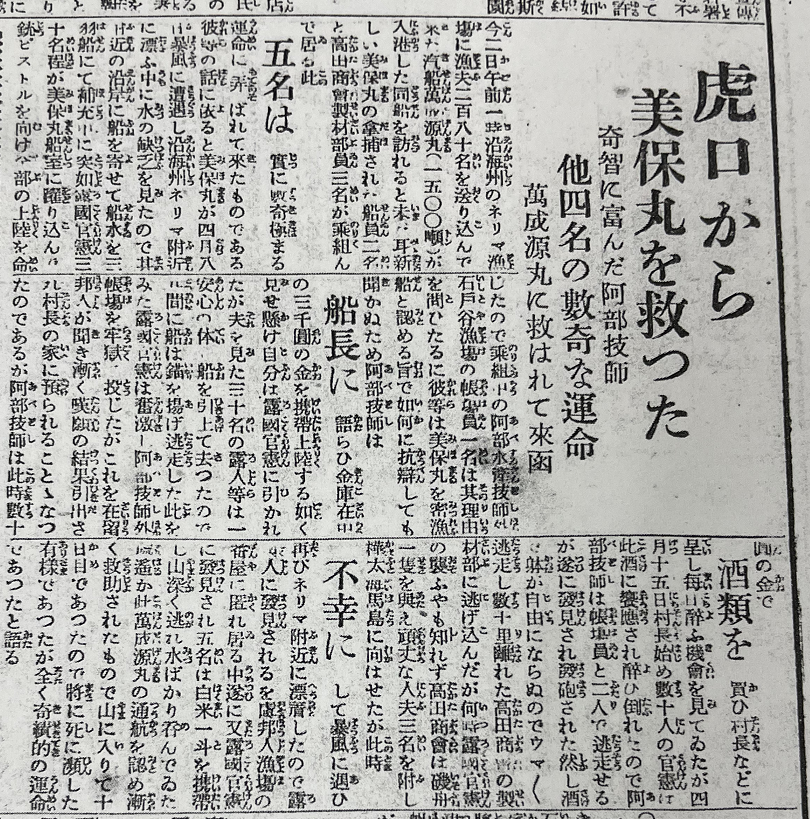 虎口から
美保丸を救つた
奇智に富んだ阿部技師
他四名の數奇な運命
萬成源丸に救はれて來函
今二日午前一時沿海州のネリマ漁
場に漁夫二百八十名を送り込んで
來た汽船萬成源丸(一五〇〇噸)が
入港した同船を訪れると未だ耳新
しい美保丸の拿捕された船員二名
と高田商會製材部員三名が乘組ん
で居た此
五名は 實に數奇極まる
運命に弄ばれて來たものである
彼等の話に依ると美保丸が四月八
日暴風に遭遇し沿海州ネリマ附近
に漂ふ中に水の缺乏を見たので其
附近の沿岸に船を寄せて船水を三
羽船にて補充中に突如露國官憲三
十名程が美保丸船室に躍り込んで
銃ピストルを向け全部の上陸を命
じたので乘組中の阿部水産技師が
石戸谷漁場の帳場員一名は其理由
を問ひたるに彼等は美保丸を密漁
船と認める旨で如何に抗辯しても
聞かぬため阿部技師は
船長に 語らひ金庫在中
の三千圓の金を携帶上陸する如く
見せ懸け自分は露國官憲に引かれ
たが夫を見た三十名の露人等は一
安心の体で船を引上て去つたので
其間に船は錨を揚げ逃走した此を
みた露國官憲は奮激し阿部技師外
帳場を牢獄に投じたがこれを在留
邦人が聞き漸く嘆願の結果引出さ
れ村長の家に預られることゝなつ
たのであるが阿部技師は此時數十
圓の金で
酒類を 買ひ村長などに
呈し每日醉ふ機會を見てゐたが四
月十五日村長始め數十人の官憲は
此酒に饗應され醉ひ倒れたので阿
部技師は帳場員と二人で逃走せる
が遂に發見され發砲された然し酒
で躰が自由にならぬのでウマ〱
逃走し數十里離れた高田商會の製
材部に逃げ込んだが何時露國官憲
の襲ふやも知れず高田商會は磯舟
一隻を與え頑丈な人夫三名を附し
樺太海馬島に向はせたが此時
不幸に して暴風に遇ひ
再びネリマ附近に漂着したので露
國人に發見されるを慮邦人漁場の
番屋に匿れ居る中遂に又露國官憲
に發見され五名は白米一斗を携帶
し山深く逃れ水ばかり呑んでゐた
が遙か此萬成源丸の通航を認め漸
く救助されたもので山に入りて十
日目であつたので將に死に瀕した
有様であつたが全く奇績的の運命
であつたと語る